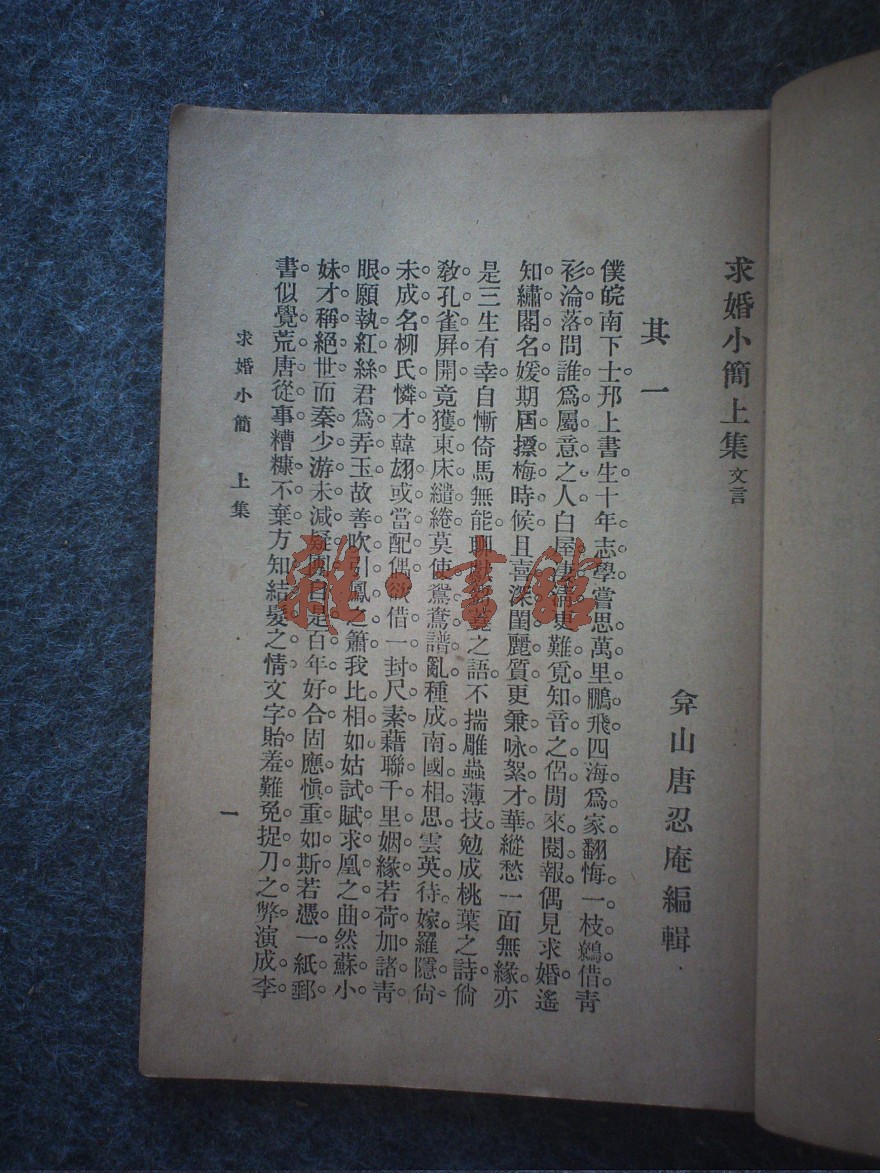 求婚小簡上集 文言
弇山唐忍庵編輯
其一
僕皖南下士邗上書生。十年志學。嘗思萬里鵬飛。四海爲家。翻悔一枝鷦借。青
衫淪落。問誰爲屬意之人。白屋淒清。更難覓知音之侶。閒來閱報。偶見求婚。遙
知繡閣名媛。期屆摽梅時候。且喜深閨麗質。更兼咏絮才華。縱愁一面無緣。亦
是三生有幸。自慚倚馬無能。聊獻 之語。不揣雕蟲薄技。勉成桃葉之詩。倘
教孔雀屏開。竟獲東床繾綣。莫使鴛鴦譜亂。種成南國相思。雲英待嫁。羅隱尙
未成名。柳氏憐才。韓翃或當配偶。欲借一封尺素。藉聯千里姻緣。若荷加諸靑
眼。願執紅絲。君爲弄玉。故善吹引鳳之簫。我比相如。姑試賦求凰之曲。然蘇小
妹才稱絕世。而秦少游未減疑團。自是百年好合。固應愼重如斯。若憑一紙郵
書。似覺荒唐從事。糟糠不棄。方知結髮之情。文字貽羞。難免捉刀之弊。演成李
求婚小簡 上集
一
雜·書館